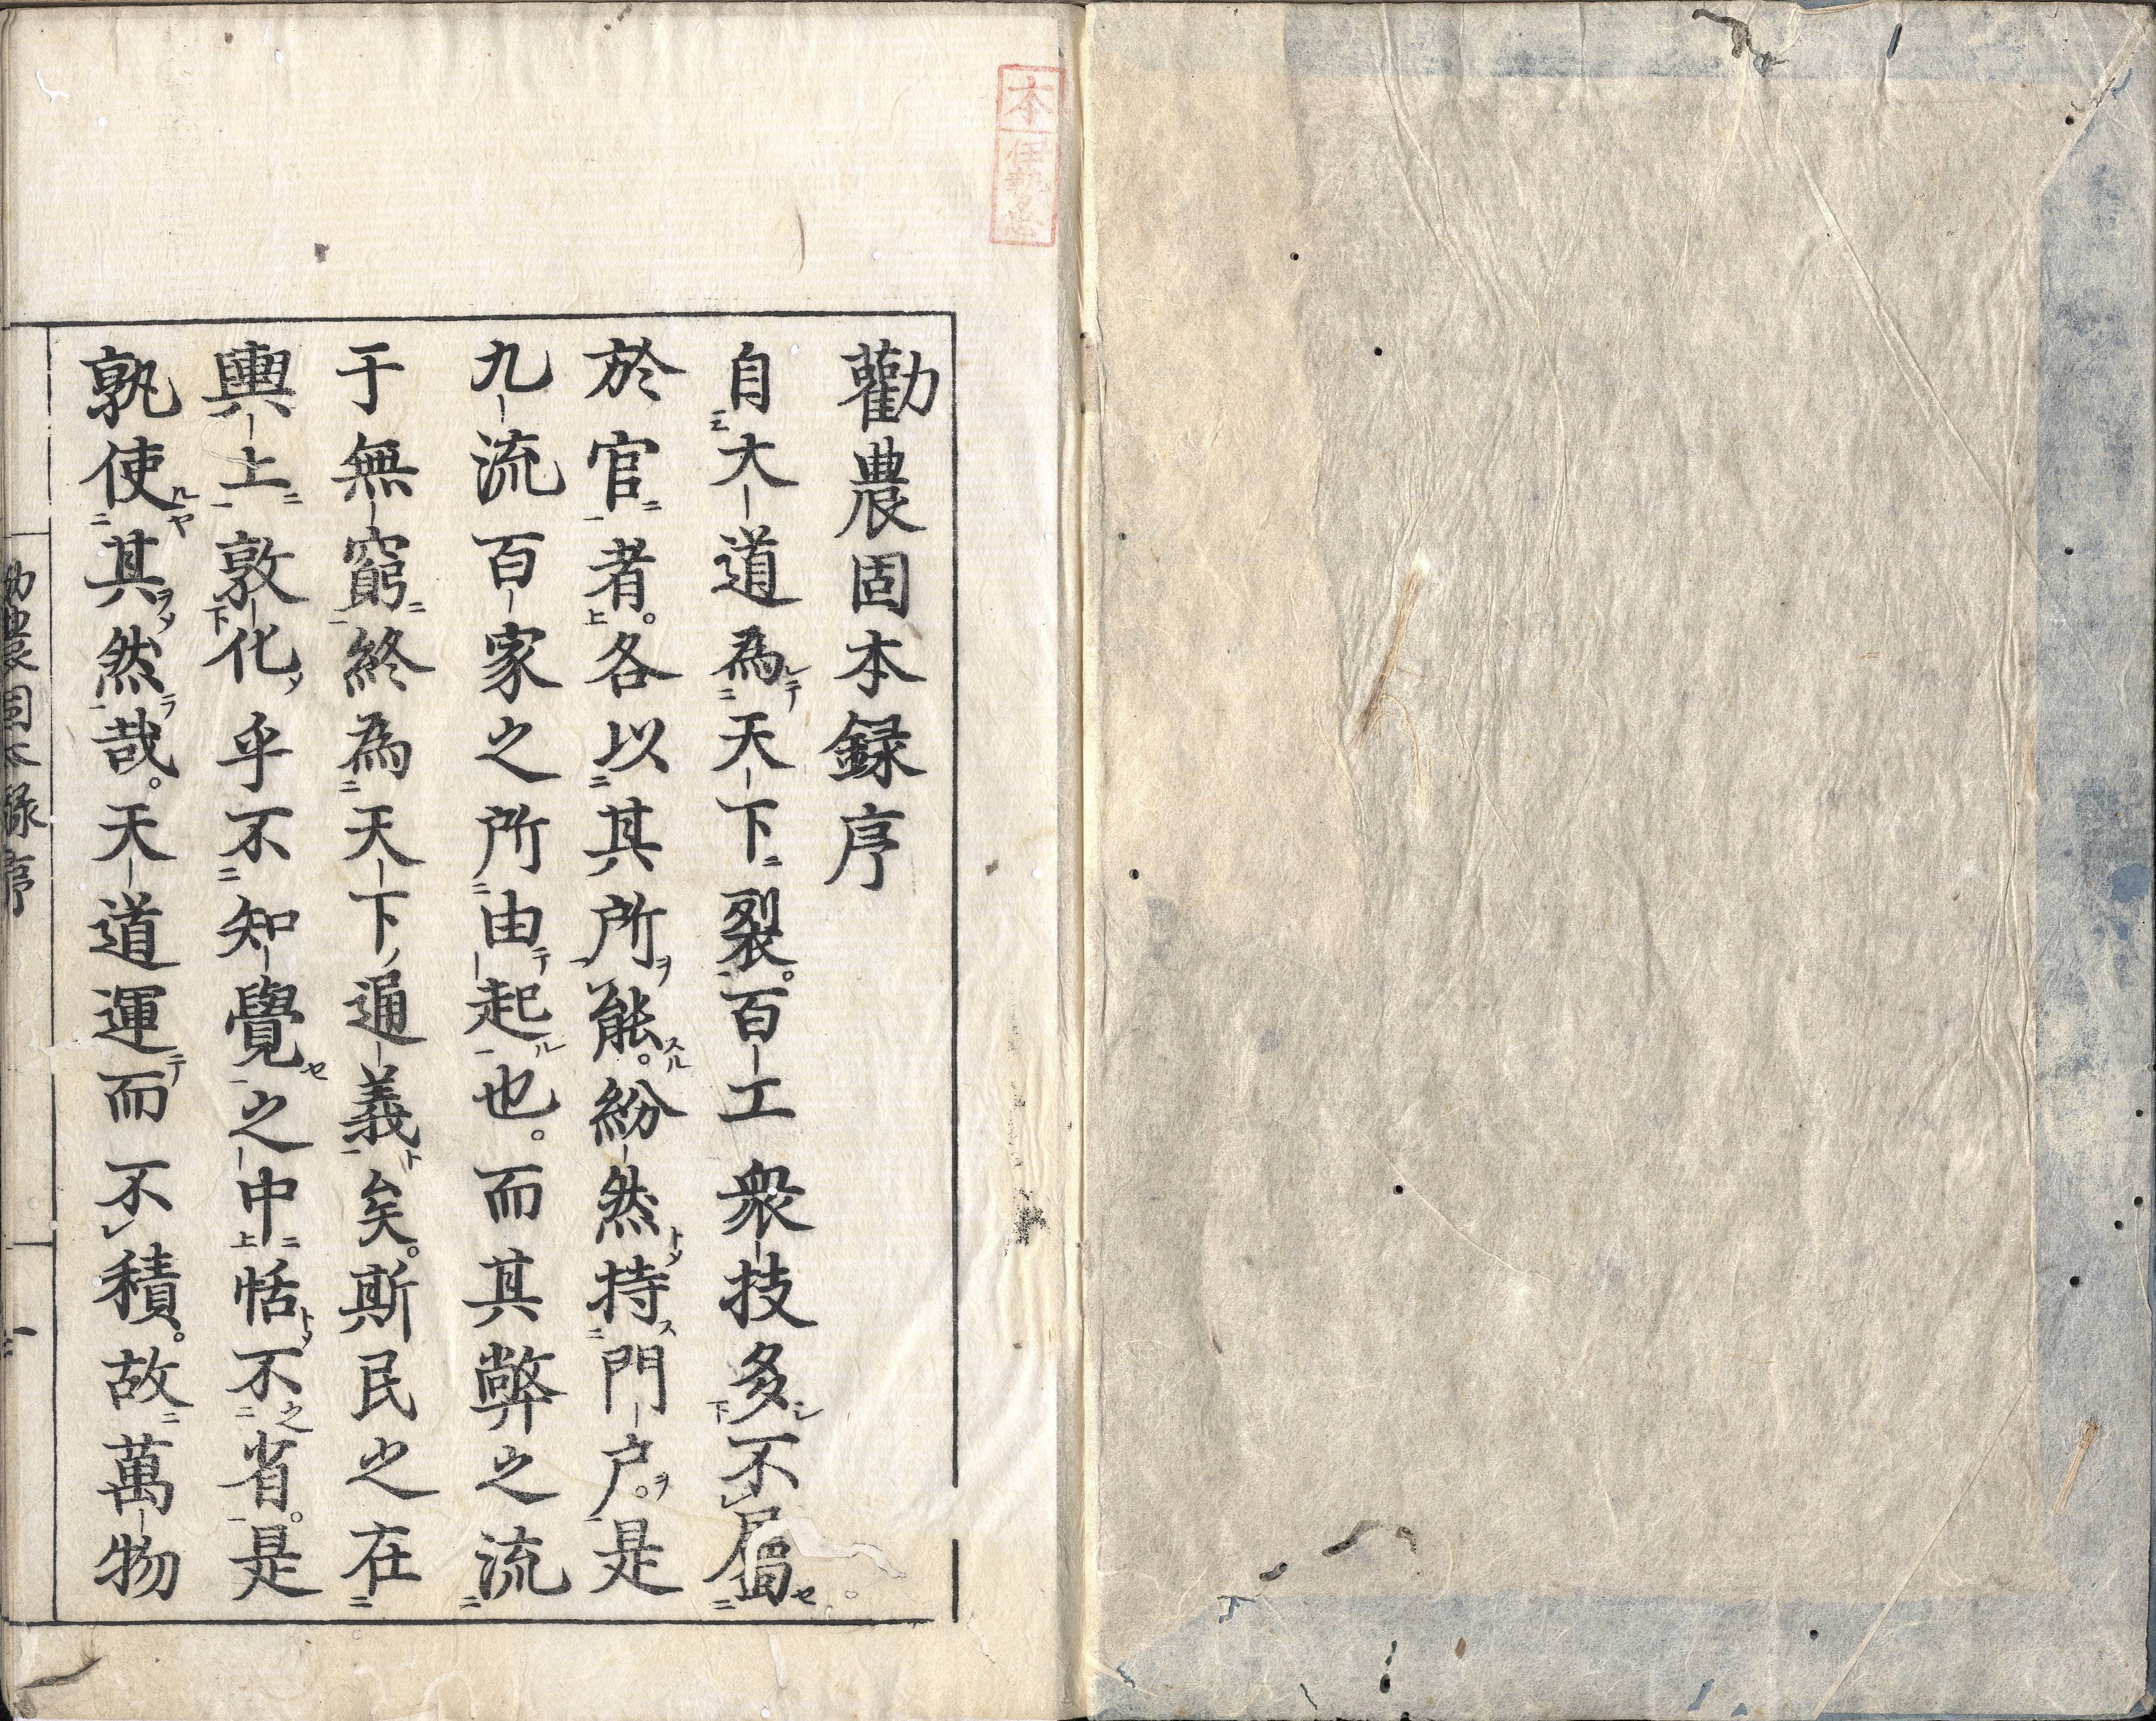 勸農固本録序
自大道為天下裂。百工衆技多不屬
於官者。各以其所能。紛然持門户。是
九流百家之所由起也。而其弊之流
于無窮終為天下通義矣。斯民之在
輿上敦化乎不知覺之中恬不省。是
孰使其然哉。天道運而不積。故萬物
勸農固本録序
一
本